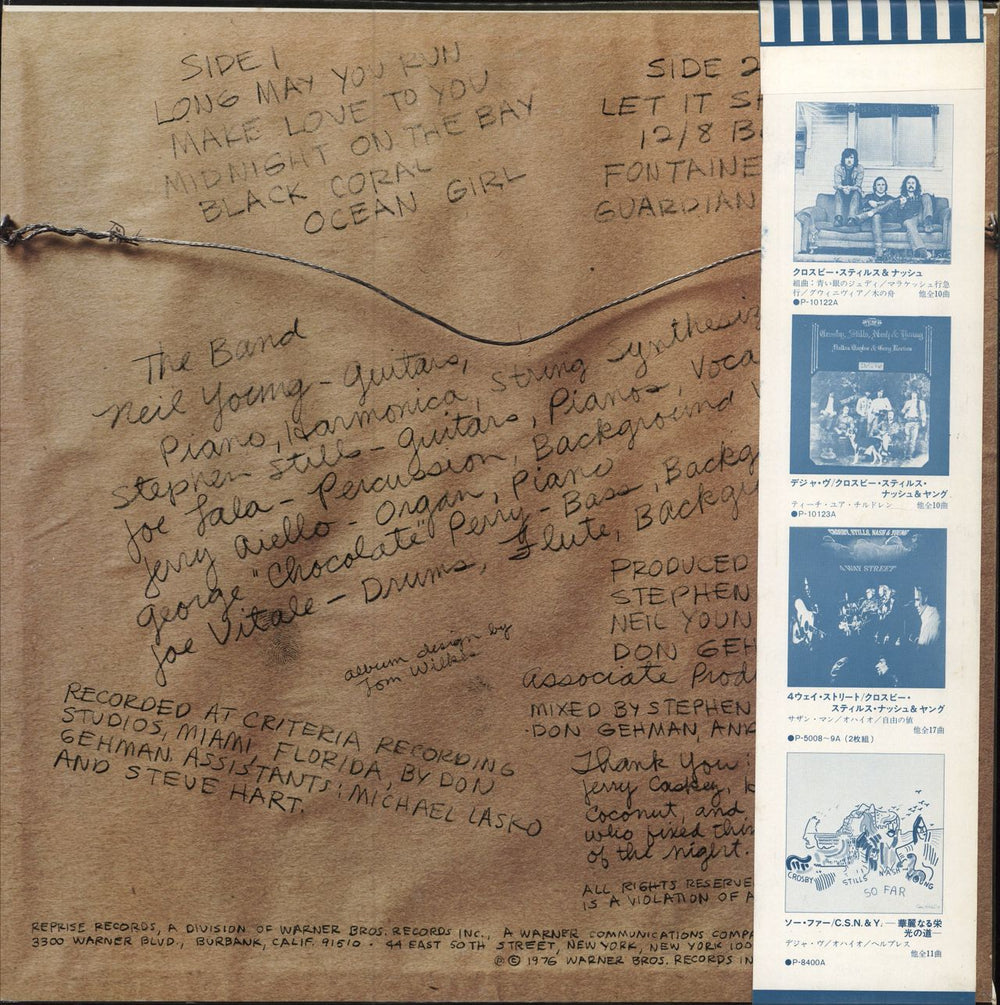 SIDE 1
LONG MAY YOU RUN
MAKE LOVE TO YOU
MIDNIGHT ON THE BAY
BLACK CORAL
OCEAN GIRL
SIDE 2
LET IT SH
12/8 B
FONTAINE
GUARDIAN
The Band
Neil Young - Guitars,
Piano, Harmonica, String Synthesiz
Stephen Stills - Guitars, Pianos, Voca
Joe Lala - Percussion, Background V
Jerry Aiello - Organ, Piano
George "Chocolate" Perry - Bass, Backg
Joe Vitale - Drums, Flute, Backgr
album design by
Tom Wilkes
RECORDED AT CRITERIA RECORDING
STUDIOS, MIAMI, FLORIDA, BY DON
GEHMAN. ASSISTANTS: MICHAEL LASKO
AND STEVE HART.
PRODUCED
STEPHEN
NEIL YOUN
DON GEH
Associate Prod
MIXED BY STEPHEN
DON GEHMAN, AND
Thank You:
Jerry Caskey, k
Coconut, and
who fixed thin
of the night.
ALL RIGHTS RESERVE
IS A VIOLATION OF A
REPRISE RECORDS, A DIVISION OF WARNER BROS. RECORDS INC., A WARNER COMMUNICATIONS COMPA
3300 WARNER BLVD., BURBANK, CALIF. 91510 · 44 EAST 50TH STREET, NEW YORK, NEW YORK 100
℗ © 1976 WARNER BROS. RECORDS IN
クロスビー・スティルス&ナッシュ
組曲:青い眼のジュディ/マラケッシュ行急
行/グウィニヴィア/木の舟 他全10曲
●P-10122A
Crosby, Stills, Nash & Young
Dallas Taylor & Greg Reeves
デジャ・ヴ/クロスビー・スティルス・
ナッシュ&ヤング
ティーチ・ユア・チルドレン 他全10曲
●P-10123A
CROSBY, STILLS, NASH & YOUNG
4 WAY STREET
4ウェイ・ストリート/クロスビー・
スティルス・ナッシュ&ヤング
サザン・マン/オハイオ/自由の値
他全17曲
●P-5008~9A (2枚組)
CROSBY STILLS NASH YOUNG
SO FAR
ソー・ファー/C.S.N.&Y.—華麗なる栄
光の道—
デジャ・ヴ/オハイオ/ヘルプレス
他全11曲
●P-8400A